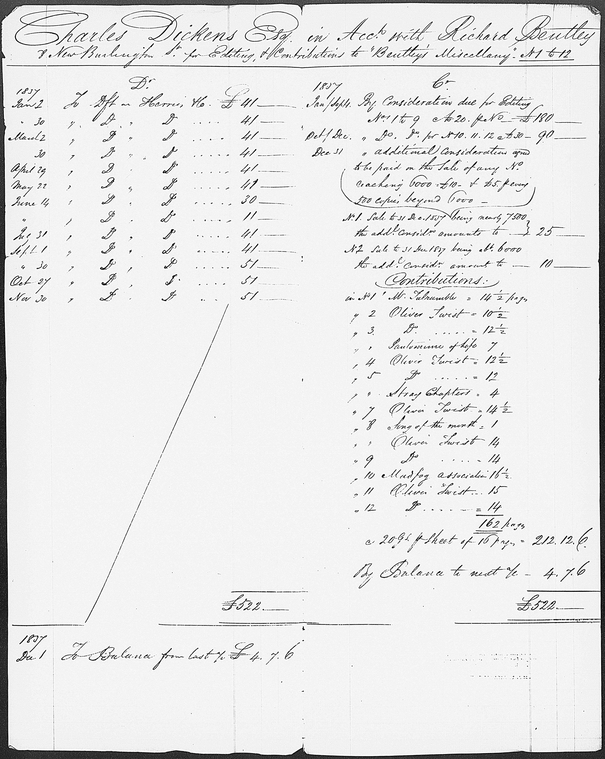 Charles Dickens Esq. in Acct. with Richard Bentley
8 New Burlington St. for Editing, & Contributions to "Bentley's Miscellany". No 1 to 12
Dr.
1837
Jany 2 To Dft on Harris, &c. £ 41
" 30 " Do " Do 41
March 2 " Do " Do 41
30 " Do " Do 41
April 29 " Do " Do 41
May 22 " Do " Do 41
June 14 " Do " Do 30
" " Do " Do 11
July 31 " Do " Do 41
Sept. 1 " Do " Do 41
" 30 " Do " Do 51
Oct 27 " Do " Do 51
Nov 30 " Do " Do 51
£522
1837
Dec 1 To Balance from last a/c £ 4. 7. 6
Cr.
1837
Jan/Sept. By Consideration due for Editing
Nos 1 to 9 @ 20. p No — £180
Oct/Dec. " Do. Do. for No 10. 11. 12 @ 30 – 90
Dec 31 " additional Consideration agreed
to be paid on the Sale of any No.
reaching 6000 – £10 – & £5 p every
500 copies beyond 6000
No 1. Sale to 31 Dec 1837 being nearly 7500
the addl. Considn. amounts to — £ 25
No 2 Sale to 31 Dec 1837 being abt. 6000
the addl. Considn. amount to — 10
Contributions:
in No 1 Mr. Tulrumble = 14 1/2 pages
" 2 Oliver Twist = 10 1/2
" 3. Do. = 12 1/2
" " Pantomime of life 7
" 4 Oliver Twist = 12 1/2
" 5 Do = 12
" " Stray Chapters = 4
" 7 Oliver Twist = 14 1/2
" 8 Song of the month = 1
" " Oliver Twist 14
" 9 Do = 14
" 10 Mudfog association 16 1/2
" 11 Oliver Twist 15
" 12 Do = 14
162 pages
@ 20 gs p Sheet of 16 pages = 212. 12. 6
By Balance to next a/c — 4. 7. 6
£522